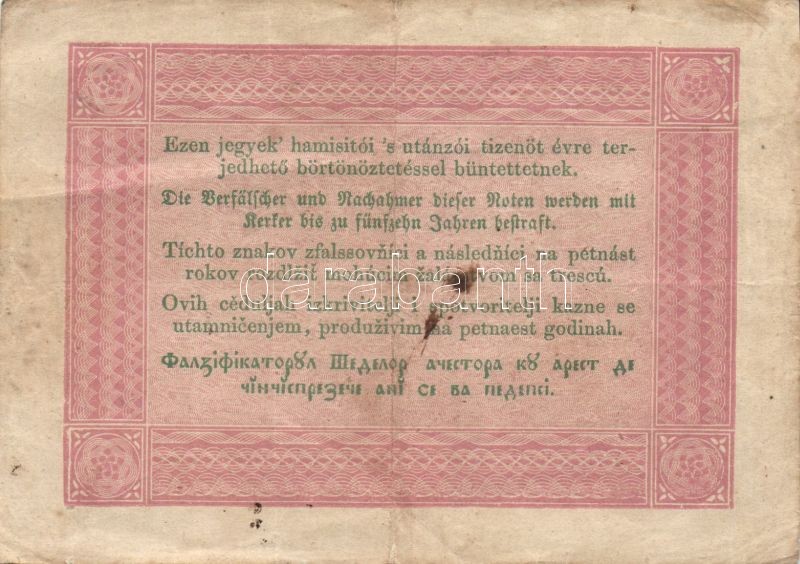 Ezen jegyek' hamisitói 's utánzói tizenöt évre ter-
jedhető börtönöztetéssel büntettetnek.
Die Verfälscher und Nachahmer dieser Noten werden mit
Kerker bis zu fünfzehn Jahren bestraft.
Tíchto znakov zfalssovňíci a následňíci na pětnást
rokov rozdlžiť mohúcim žalárovom sa trescú.
Ovih cěduljah izkrivitelji i spotvoritelji kazne se
utamničenjem, produživim na petnaest godinah.
Фалзіфікаторꙋл Шеделор ачестора кꙋ арест де
чінчіспрезече ані се ва педепсі.
darabanth